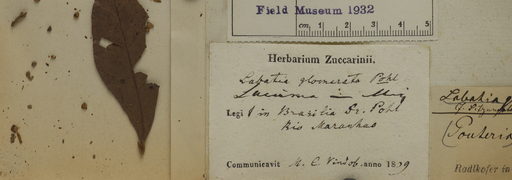 Field Museum 1932
cm 1 2 3 4 5
Herbarium Zuccarinii.
Labatia glomerata Pohl
Lucuma
Legit in Brasilia Dr. Pohl
Rio Maranhao
Communicavit M. C. Vindob. anno 1839
Labatia g
(Pouteria
Radlkofer in